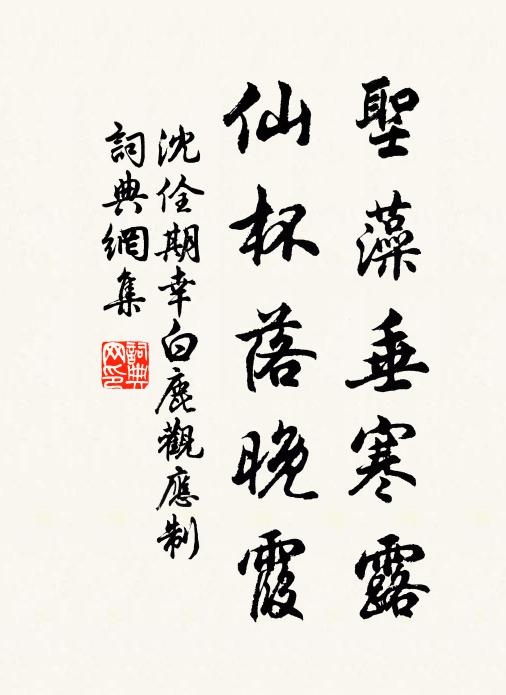 聖藻垂寒露
仙杯落晚霞
沈佺期幸白鹿觀應制
詞典網集
詞典网印